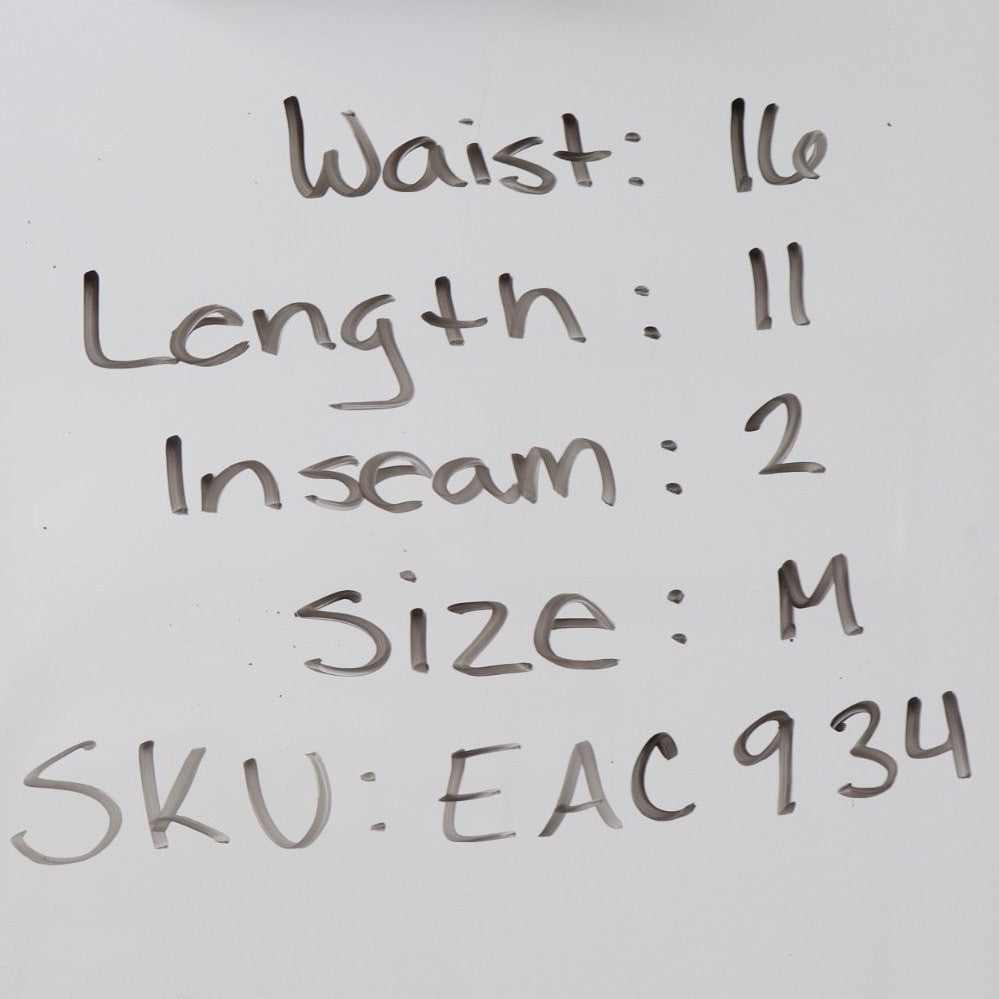 Waist: 16
Length: 11
Inseam: 2
Size: M
SKU: EAC 934